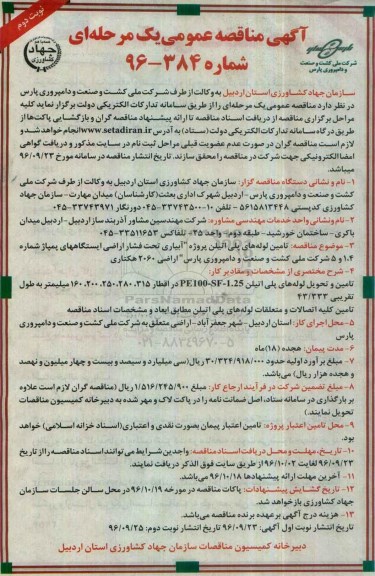 نوبت دوم
آگهی مناقصه عمومی یک مرحله‌ای
شماره ۳۸۴-۹۶
جهاد کشاورزی
شرکت ملی کشت و صنعت و دامپروری پارس
سازمان جهاد کشاورزی استان اردبیل به وکالت از طرف شرکت ملی کشت و صنعت و دامپروری پارس
در نظر دارد مناقصه عمومی یک مرحله‌ای را از طریق سامانه تدارکات الکترونیکی دولت برگزار نماید کلیه
مراحل برگزاری مناقصه از دریافت اسناد مناقصه تا ارائه پیشنهاد مناقصه گران و بازگشایی پاکت‌ها از
طریق درگاه سامانه تدارکات الکترونیکی دولت (ستاد) به آدرس www.setadiran.ir انجام خواهد شد و
لازم است مناقصه گران در صورت عدم عضویت قبلی مراحل ثبت نام در سایت مذکور و دریافت گواهی
امضا الکترونیکی جهت شرکت در مناقصه را محقق سازند. تاریخ انتشار مناقصه در سامانه مورخ ۹۶/۰۹/۲۳
میباشد.
۱- نام و نشانی دستگاه مناقصه گزار: سازمان جهاد کشاورزی استان اردبیل به وکالت از طرف شرکت ملی
کشت و صنعت و دامپروری پارس - اردبیل شهرک اداری بعثت (کارشناسان) میدان مهارت - سازمان جهاد
کشاورزی کدپستی ۵۶۱۵۸۱۳۴۴۸ - تلفن ۱۰-۳۳۷۴۳۵۰۰-۰۴۵ دورنگار ۳۳۷۴۳۹۷۱-۰۴۵
۲- نام ونشانی واحد خدمات مهندسی مشاور: شرکت مهندسین مشاور آذربند ساز اردبیل - اردبیل میدان
باکری - ساختمان خورشید - طبقه دوم - واحد ۲۴۵ تلفاکس ۳۳۵۱۱۶۵۳-۰۴۵
۳- موضوع مناقصه: تامین لوله‌های پلی اتیلن پروژه "آبیاری تحت فشار اراضی ایستگاههای پمپاژ شماره
۱،۴ و ۵ شرکت ملی کشت و صنعت و دامپروری پارس" اراضی ۲۰۶۰ هکتاری
۴- شرح مختصری از مشخصات و مقادیر کار:
تامین و تحویل لوله‌های پلی اتیلن PE100-SF-1.25 در اقطار ۳۱۵، ۲۸۰، ۲۵۰، ۲۰۰، ۱۶۰ میلیمتر به طول
تقریبی ۴۳/۳۳۳
تامین کلیه اتصالات و متعلقات لوله‌های پلی اتیلن مطابق ابعاد و مشخصات اسناد مناقصه
۵- محل اجرای کار: استان اردبیل - شهر جعفر آباد - اراضی متعلق به شرکت ملی کشت و صنعت و دامپروری
پارس
۶- مدت پیمان: هجده (۱۸) ماه
۷- مبلغ برآورد اولیه حدود ۳۰/۳۲۴/۹۱۸/۰۰۰ ریال (سی میلیارد و سیصد و بیست و چهار میلیون و نهصد
و هجده هزار ریال) می‌باشد.
۸- مبلغ تضمین شرکت در فرآیند ارجاع کار: مبلغ ۱/۵۱۶/۲۴۵/۹۰۰ ریال (مناقصه گران لازم است علاوه
بر بارگذاری در سامانه ستاد، اصل ضمانت نامه را در پاکت لاک و مهر شده به دبیرخانه کمیسیون مناقصات
تحویل نمایند.)
۹- محل تامین اعتبار پروژه: تامین اعتبار پیمان بصورت نقدی و اعتباری (اسناد خزانه اسلامی) خواهد
بود.
۱۰- تاریخ، مهلت و محل دریافت اسناد مناقصه: واجدین شرایط می‌توانند اسناد مناقصه را از تاریخ
۹۶/۰۹/۲۳ لغایت ۹۶/۱۰/۰۲ از طریق سایت فوق الذکر دریافت نمایند.
۱۱- آخرین مهلت ارائه پیشنهادها ۹۶/۱۰/۱۸ می‌باشد.
۱۲- تاریخ گشایش پیشنهادات: پاکات مناقصه در مورخه ۹۶/۱۰/۱۹ در محل سالن جلسات سازمان
جهاد کشاورزی باز خواهد شد.
۱۳- هزینه درج آگهی بر عهده برنده مناقصه می‌باشد.
تاریخ انتشار نوبت اول آگهی: ۹۶/۰۹/۲۳ تاریخ انتشار نوبت دوم: ۹۶/۰۹/۲۵
دبیرخانه کمیسیون مناقصات سازمان جهاد کشاورزی استان اردبیل
ParsNamadData
۰۲۱-۸۸۳۴۹۶۷۰-۵